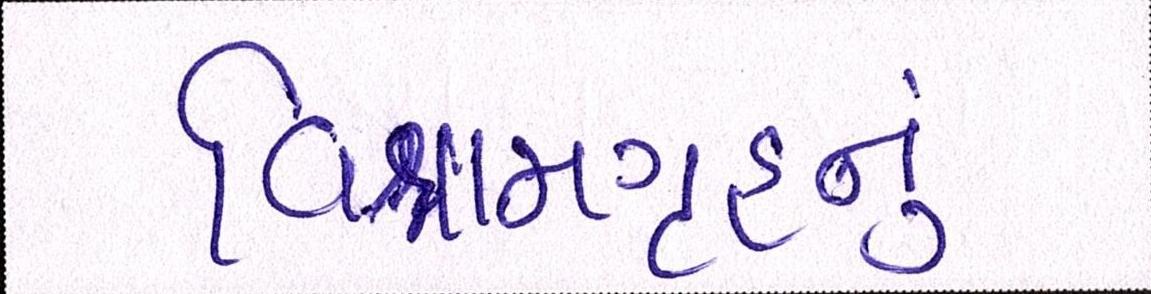 વિશ્રામગૃહનું